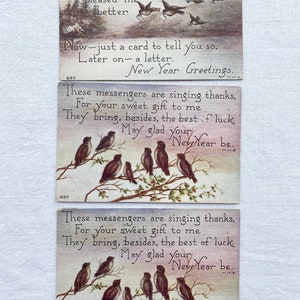 pleased me
better.
Now—just a card to tell you so,
Later on—a letter.
New Year Greetings.
891
These messengers are singing thanks,
For your sweet gift to me
They bring, besides, the best of luck
May glad your
New Year be.
890
These messengers are singing thanks,
For your sweet gift to me
They bring, besides, the best of luck
May glad your
New Year be.